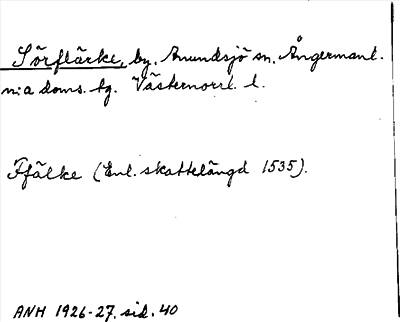 Sörflärke, by. Anundsjö sn. Ångermanl.
n:a doms. tg. Västernorrl. l.
Ffälke (Enl. skattelängd 1535).
ANH 1926-27. sid. 40